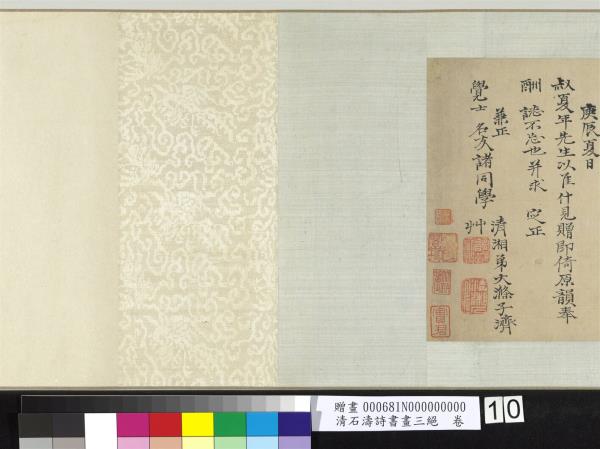 庚辰夏日
叔夏年先生以佳什見贈即倚原韻奉
酬誌不忘也并求 定正
兼正
覺士名友諸同學
清湘弟大滌子濟
艸
贈畫 000681N000000000
清石濤詩書畫三絕 卷
10